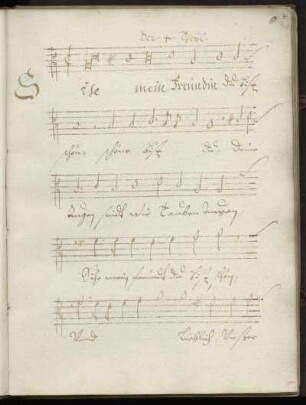 Der 4 Theil
Sihe mein Freundin du bist
schön, schöne bist du, deine
Augen sindt wie Tauben Augen
Sihe mein freundt du bist schön,
Vnd lieblich, Vnser